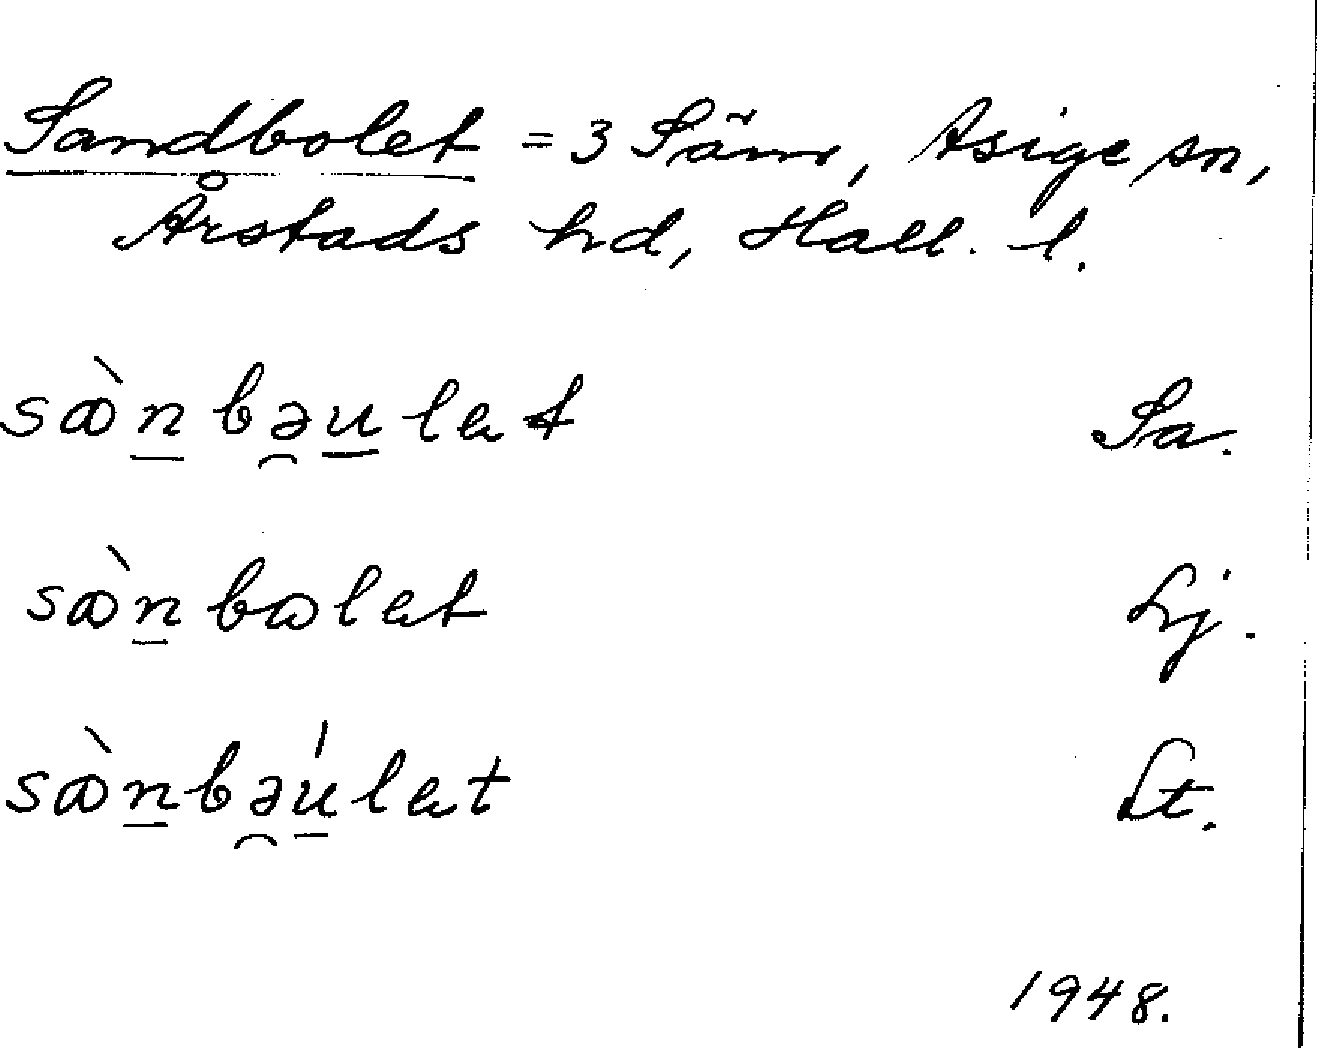 Sandbolet = 3 Säm, Asige sn,
Årstads hd, Hall. l.
sɑ̀n̲bə̯u̲lɐt Sa.
sɑ̀n̲bɷlɐt Lj.
sɑ̀n̲bə̯ú̲lɐt Lt.
1948.